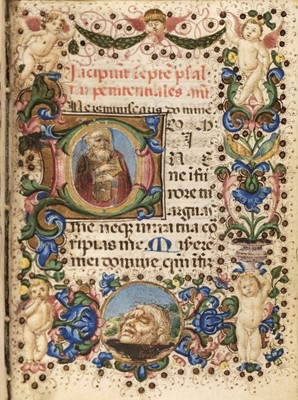 Incipiunt septe psal
mi penitentiales an̄
Ne reminiscaris domine.
DO MI
NE
ne i furo
rore tuo
arguas
me neq; in ira tua co
ripias me. Misere
mei domine qm̄ ifir